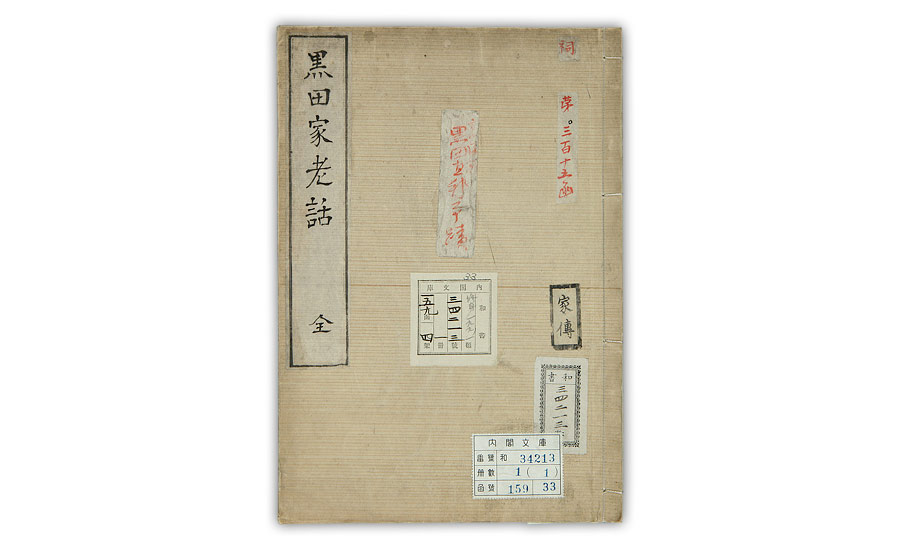 黒田家老話 全
第三百十五函
家傳
内閣文庫
和書
三四二一三
一五九
内閣文庫
番號 和 34213
冊數 1 ( 1 )
函號 159 33
和書
三四二一三
33